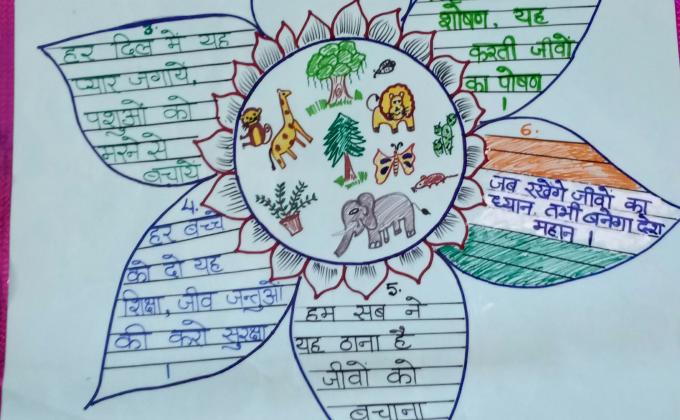 शोषण, यह
करती जीवों
का पोषण
।
3.
हर दिल में यह
प्यार जगायें,
पशुओं को
मरने से
बचायें
4.
हर बच्चे
को दो यह
शिक्षा, जीव जन्तुओं
की करो सुरक्षा
।
5.
हम सब ने
यह ठाना है
जीवों को
बचाना
6.
जब रखेगे जीवों का
ध्यान, तभी बनेगा देश
महान ।